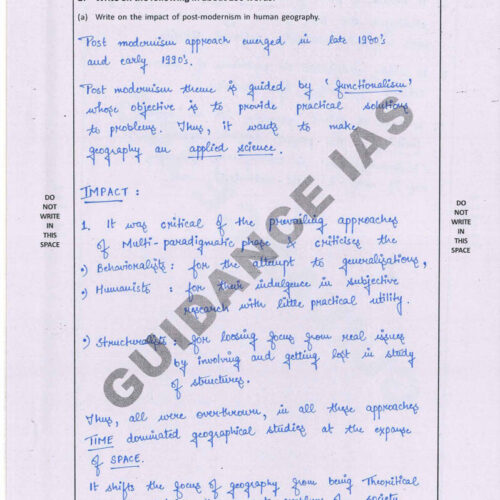 (a) Write on the impact of post-modernism in human geography.
Post modernism approach emerged in late 1980's
and early 1990's.
Post modernism theme is guided by 'functionalism'
whose objective is to provide practical solutions
to problems. Thus, it wants to make
geography an applied science.
IMPACT :
1. It was critical of the prevailing approaches
of Multi-paradigmatic phase & criticises the
•) Behavioralists : for the attempt to generalizations,
•) Humanists : for their indulgence in subjective
research with little practical utility.
•) Structuralists : for loosing focus from real issues
by involving and getting lost in study
of structures.
Thus, all were overthrown, in all these approaches
TIME dominated geographical studies at the expense
of SPACE.
It shifts the focus of geography from being Theoritical
DO
NOT
WRITE
IN
THIS
SPACE
DO
NOT
WRITE
IN
THIS
SPACE
GUIDANCE IAS